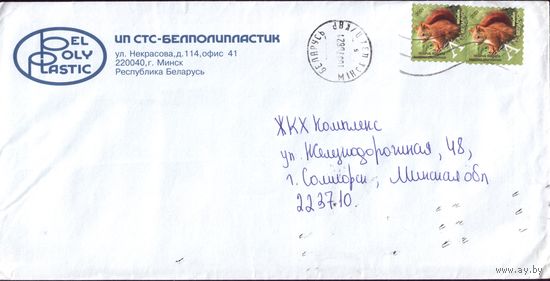 BEL
POLY
PLASTIC
ИП СТС-БЕЛПОЛИПЛАСТИК
ул. Некрасова,д.114,офис 41
220040,г. Минск
Республика Беларусь
БЕЛАРУСЬ
A A
ЖКХ Комплекс
ул. Железнодорожная, 48,
г. Солигорск, Минская обл
223710.
www.ay.by